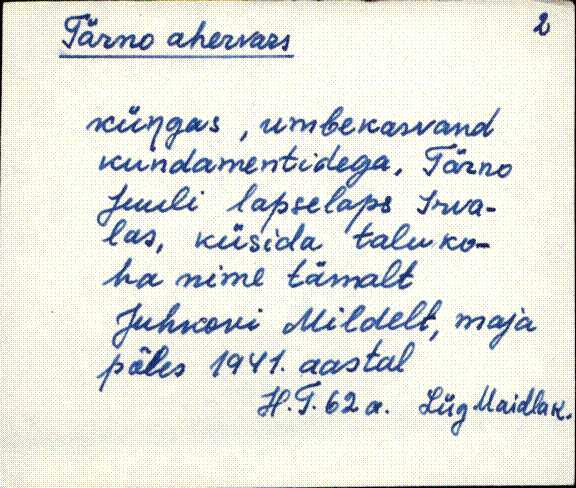 2
Tärno ahervars
küŋgas, umbekasvand
kundamentidega, Tärno
Juuli lapselaps Irva-
las, küsida taluko-
ha nime tämalt
Juhkovi Mildelt, maja
põles 1941. aastal
H.T. 62 a. Lüg Maidla k.